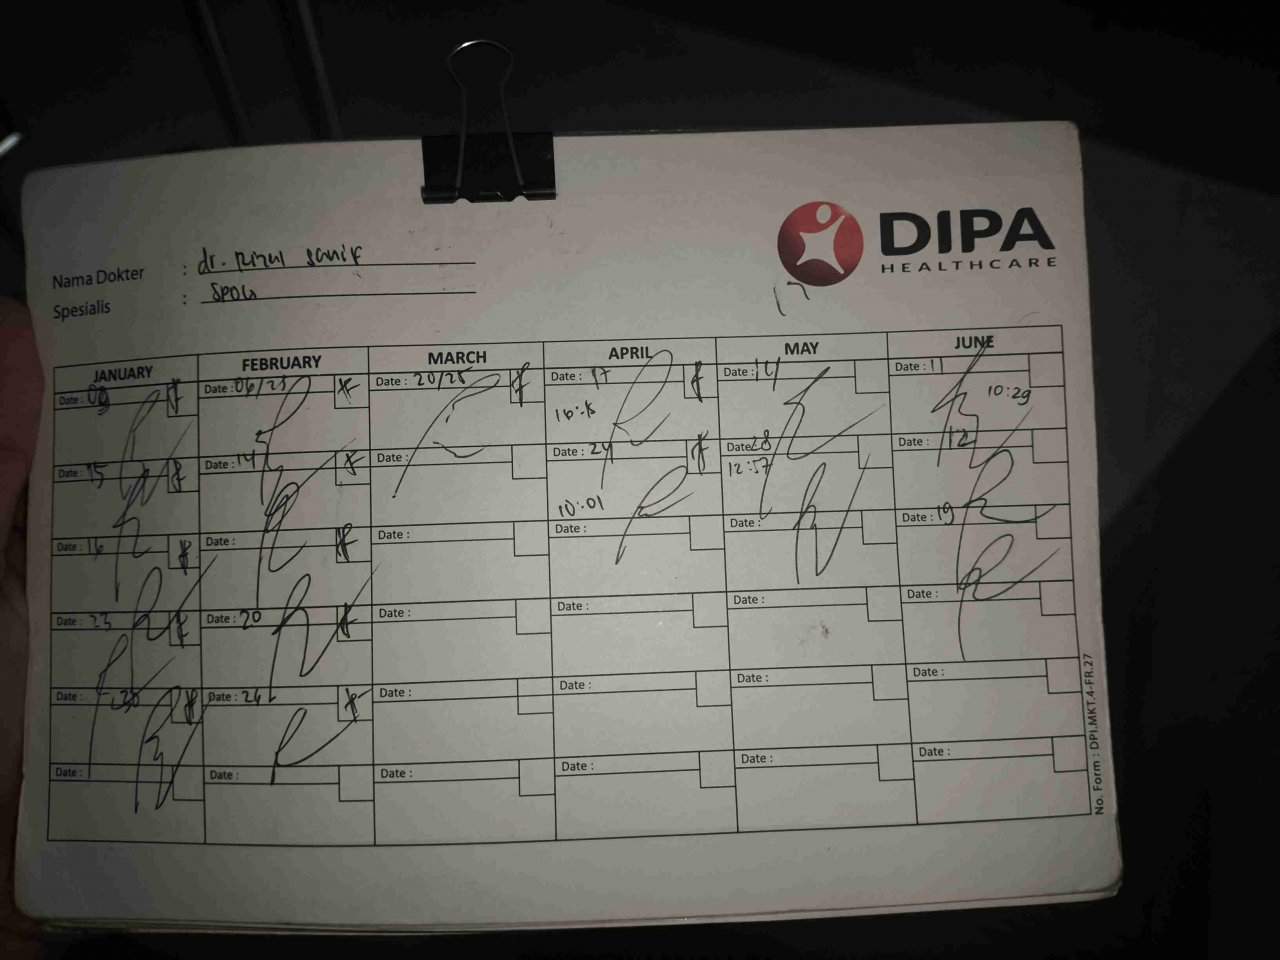 DIPA
HEALTHCARE
Nama Dokter : dr. Rizul Sanif
Spesialis : SPOG
JANUARY FEBRUARY MARCH APRIL MAY JUNE
Date : 09 Date : 06/25 Date : 20/25 Date : 17 Date : 14 Date : 11
10:29
Date : 15 Date : 14 Date : Date : 24 Date : 28 Date : 12
12:57
10:01
Date : 16 Date : Date : Date : Date : Date : 19
Date : 23 Date : 20 Date : Date : Date : Date :
Date : 30 Date : 24 Date : Date : Date : Date :
Date : Date : Date : Date : Date : Date :
No. Form : DPI.MKT.4-FR.27